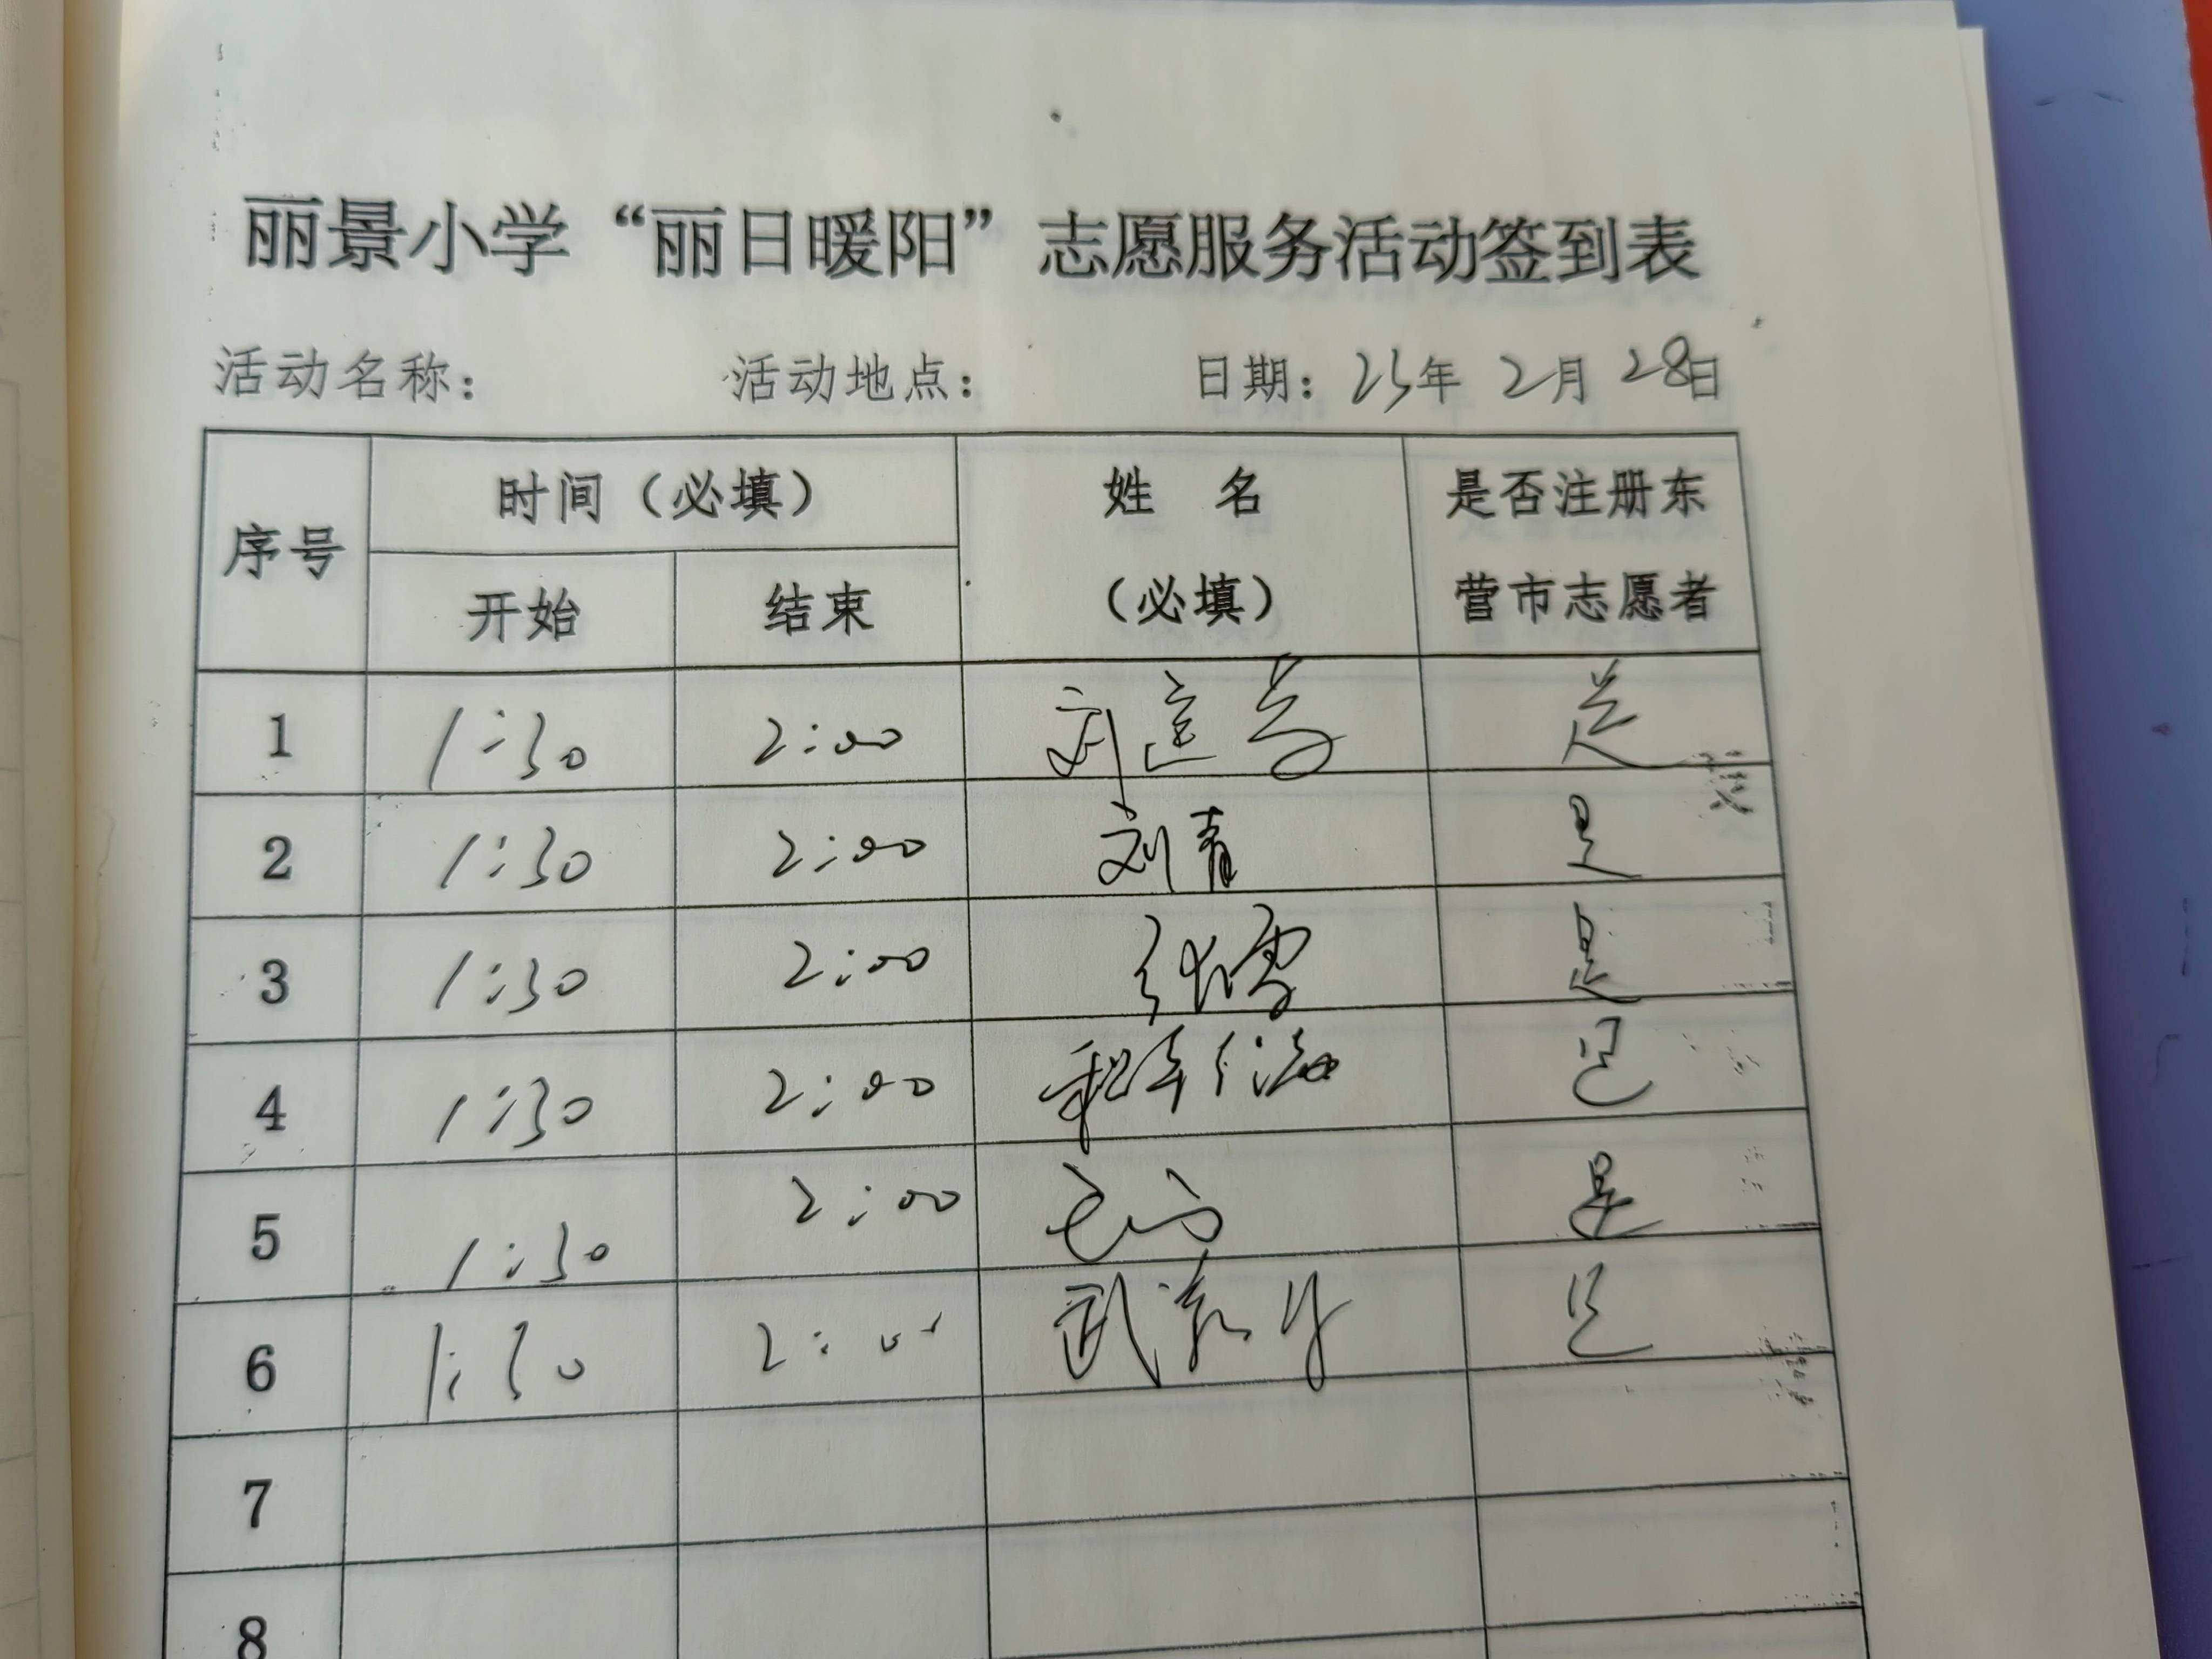 丽景小学“丽日暖阳”志愿服务活动签到表
活动名称： 活动地点： 日期：23年 2月 28日
序号 时间（必填） 姓 名（必填） 是否注册东营市志愿者
开始 结束
1 1:30 2:00 刘 是
2 1:30 2:00 刘青 是
3 1:30 2:00 张雪 是
4 1:30 2:00 是
5 1:30 2:00 是
6 1:30 2:00 武 是
7
8